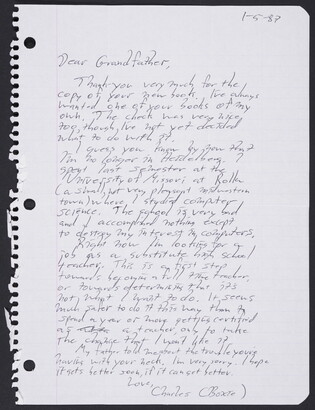 1-5-87
Dear Grandfather,
Thank you very much for the
copy of your new book. I've always
wanted one of your books of my
own. The check was very nice
too, though, I've not yet decided
what to do with it.
I guess you know by now that
I'm no longer in Heidelberg. I
spent last semester at the
University of Missouri at Rolla
(a small, yet very pleasant midwestern
town) where I studied computer
science. The school is very bad
and I accomplished nothing except
to destroy my interest in computers.
Right now I'm looking for a
job as a substitute high school
teacher. This is a first step
towards becoming a full time teacher,
or towards determining that it's
not what I want to do. It seems
much safer to do it this way than to
spend a year or more getting certified
as a teacher, only to take
the chance that I won't like it.
My father told me about the trouble you're
having with your neck. I'm very sorry. I hope
it gets better soon, if it can get better.
Love,
Charles (Boxie)